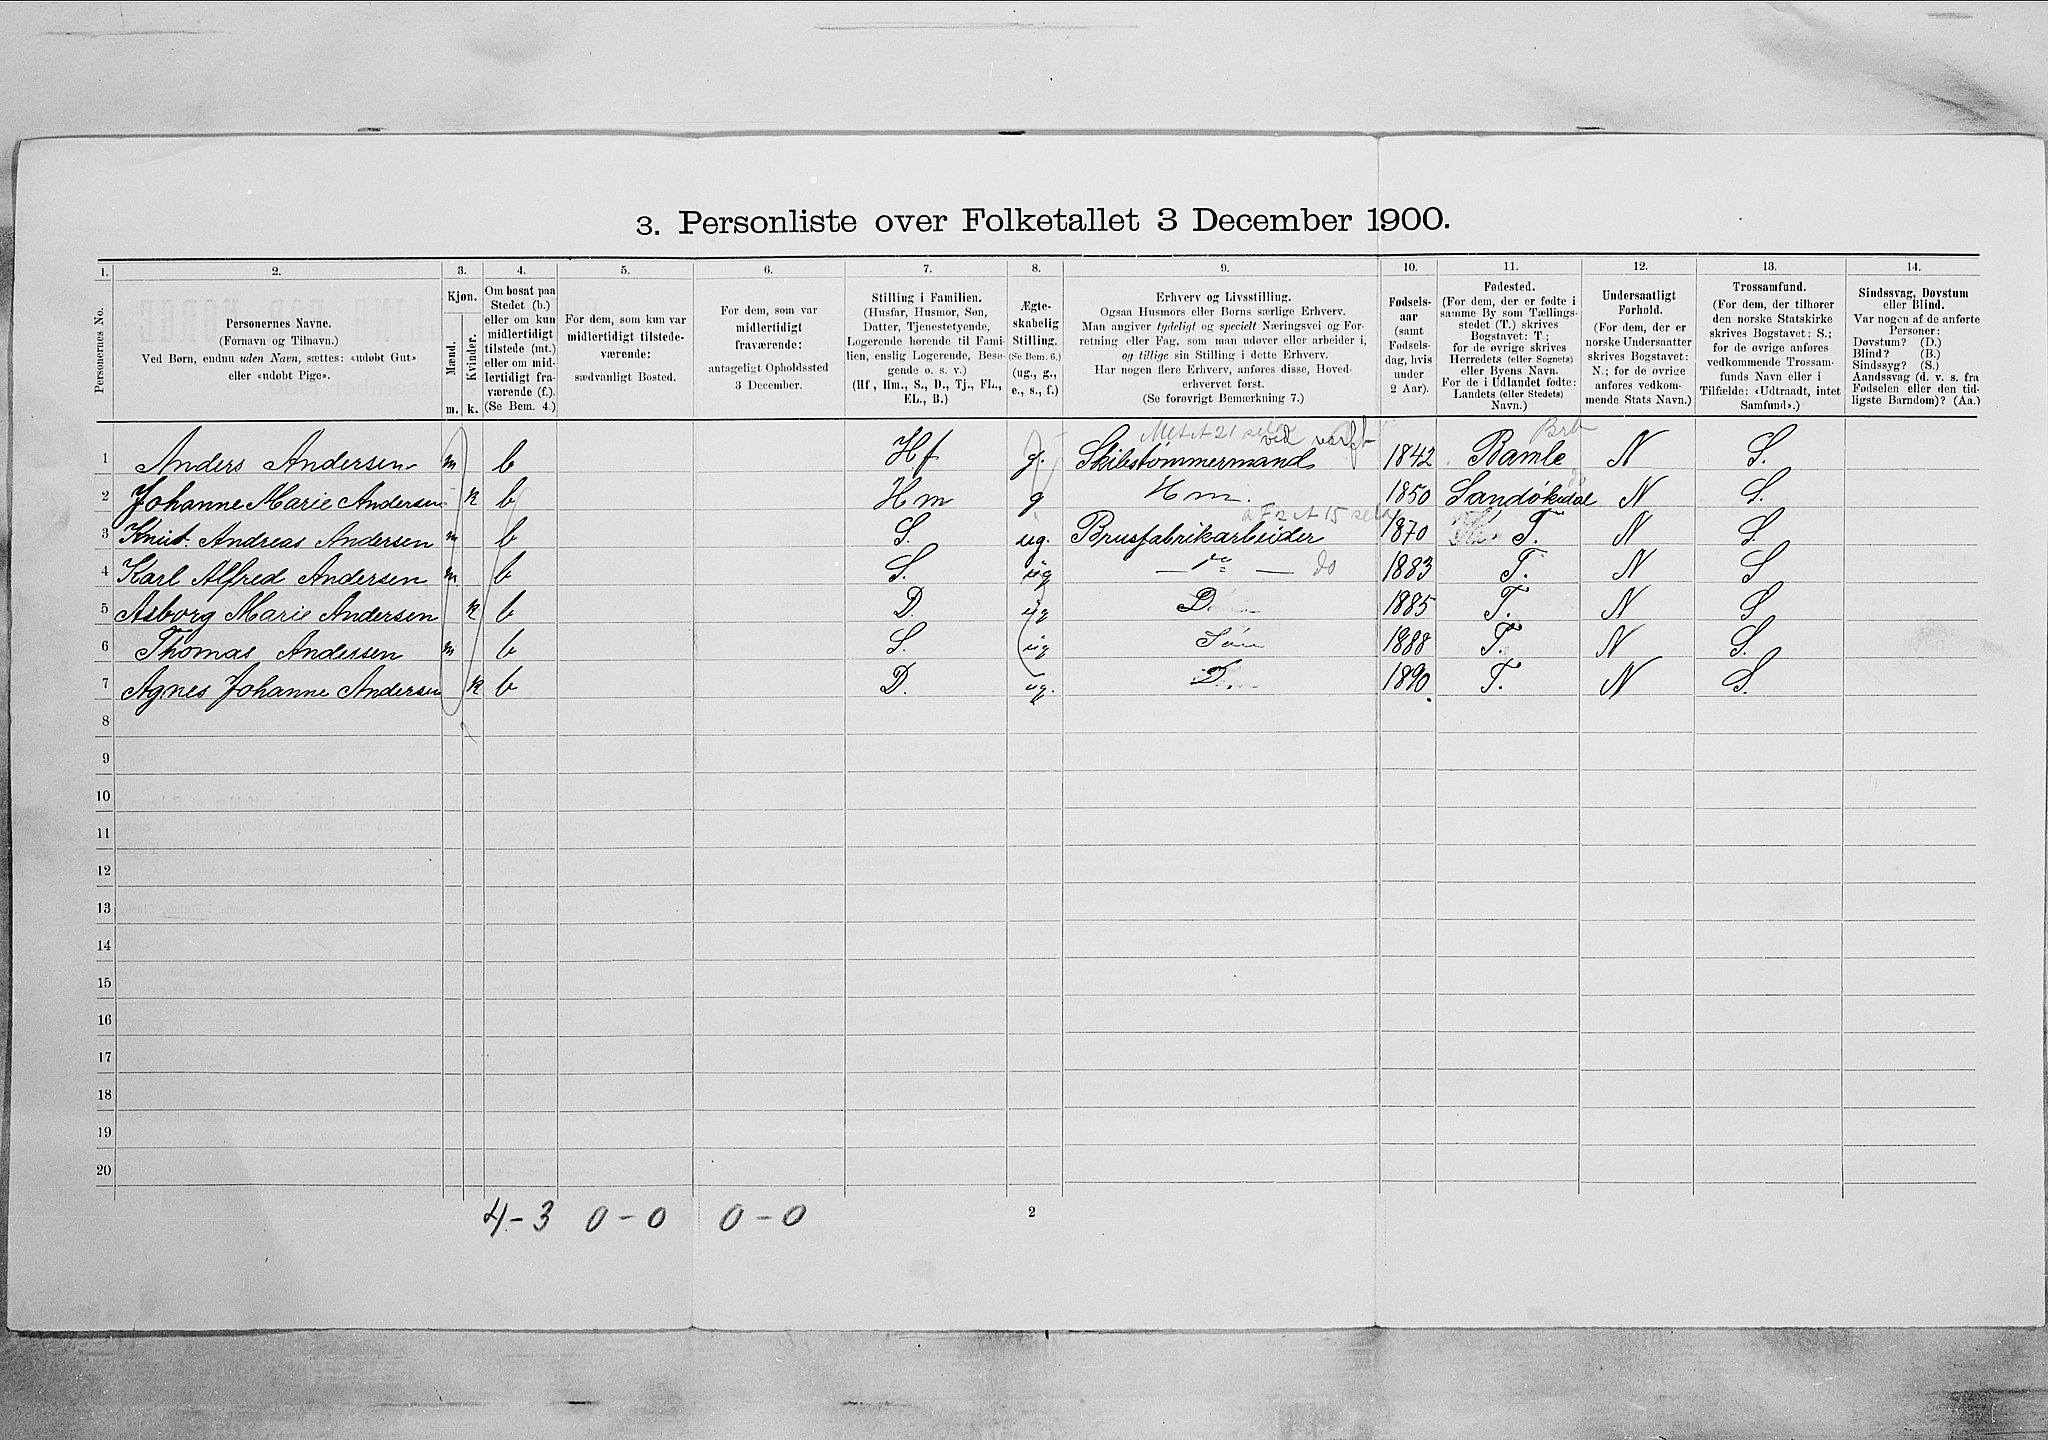 3. Personliste over Folketallet 3 December 1900.
1. 2. 3. 4. 5. 6. 7. 8. 9. 10. 11. 12. 13. 14.
Personernes No.
Personernes Navne.
(Fornavn og Tilnavn.)
Ved Børn, endnu uden Navn, sættes: «udøbt Gut»
eller «udøbt Pige».
Kjøn.
Mænd.
Kvinder.
m. k.
Om bosat paa
Stedet (b.)
eller om kun
midlertidigt
tilstede (mt.)
eller om mid-
lertidigt fra-
værende (f.).
(Se Bem. 4.)
For dem, som kun var
midlertidigt tilstede-
værende:
sædvanligt Bosted.
For dem, som var
midlertidigt
fraværende:
antageligt Opholdssted
3 December.
Stilling i Familien.
(Husfar, Husmor, Søn,
Datter, Tjenestetyende,
Logerende hørende til Fami-
lien, enslig Logerende, Besø-
gende o. s. v.)
(Hf, Hm., S., D., Tj., FL.,
EL., B.)
Ægte-
skabelig
Stilling.
(Se Bem. 6.)
(ug., g.,
e., s., f.)
Erhverv og Livsstilling.
Ogsaa Husmors eller Børns særlige Erhverv.
Man angiver tydeligt og specielt Næringsvei og For-
retning eller Fag, som man udøver eller arbeider i,
og tillige sin Stilling i dette Erhverv.
Har nogen flere Erhverv, anføres disse, Hoved-
erhvervet først.
(Se forøvrigt Bemærkning 7.)
Fødsels-
aar
(samt
Fødsels-
dag, hvis
under
2 Aar).
Fødested.
(For dem, der er fødte i
samme By som Tællings-
stedet (T.) skrives
Bogstavet: T.;
for de øvrige skrives
Herredets (eller Sognets)
eller Byens Navn.
For de i Udlandet fødte:
Landets (eller Stedets)
Navn.)
Undersaatligt
Forhold.
(For dem, der er
norske Undersaatter
skrives Bogstavet:
N.; for de øvrige
anføres vedkom-
mende Stats Navn.)
Trossamfund.
(For dem, der tilhører
den norske Statskirke
skrives Bogstavet: S.;
for de øvrige anføres
vedkommende Trossam-
funds Navn eller i
Tilfælde: «Udtraadt, intet
Samfund».)
Sindssvag, Døvstum
eller Blind.
Var nogen af de anførte
Personer:
Døvstum? (D.)
Blind? (B.)
Sindssyg? (S.)
Aandssvag (d. v. s. fra
Fødselen eller den tid-
ligste Barndom)? (Aa.)
1 Anders Andersen m b Hf g. Skibstømmermand ved værft 1842 Bamle N S.
2 Johanne Marie Andersen k b Hm g Hm. 1850 Sandøkedal N S.
3 Knut Andreas Andersen m b S. ug. Brusfabrikarbeider 1870 T. N S.
4 Karl Alfred Andersen m b S. ug — do — do 1883 T. N S
5 Asborg Marie Andersen k b D. ug D. 1885 T. N S
6 Thomas Andersen m b S. ug Søn 1888 T. N S.
7 Agnes Johanne Andersen k b D. ug. D. 1890. T. N S.
8
9
10
11
12
13
14
15
16
17
18
19
20
4-3 0-0 0-0
2